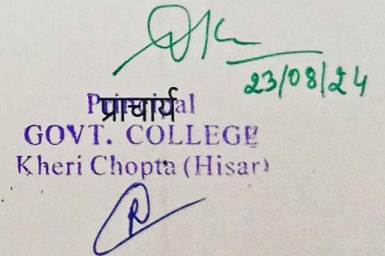 23/08/24
प्राचार्य
Principal
GOVT. COLLEGE
Kheri Chopta (Hisar)